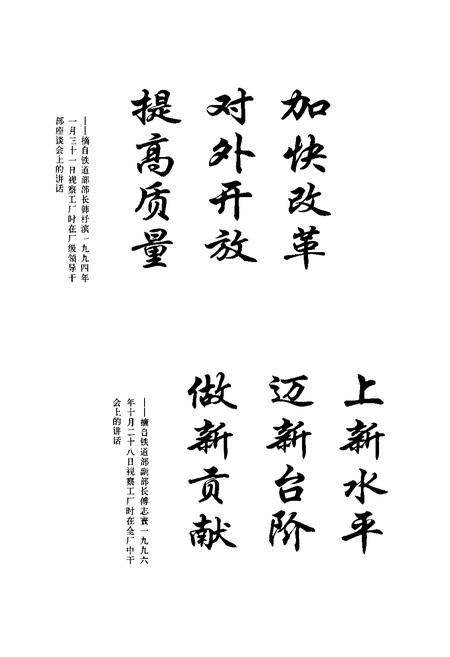 加快改革
对外开放
提高质量
——摘自铁道部部长韩杼滨一九九四年
一月三十一日视察工厂时在厂级领导干
部座谈会上的讲话
上新水平
迈新台阶
做新贡献
——摘自铁道部副部长傅志寰一九九六
年十月二十八日视察工厂时在全厂中干
会上的讲话